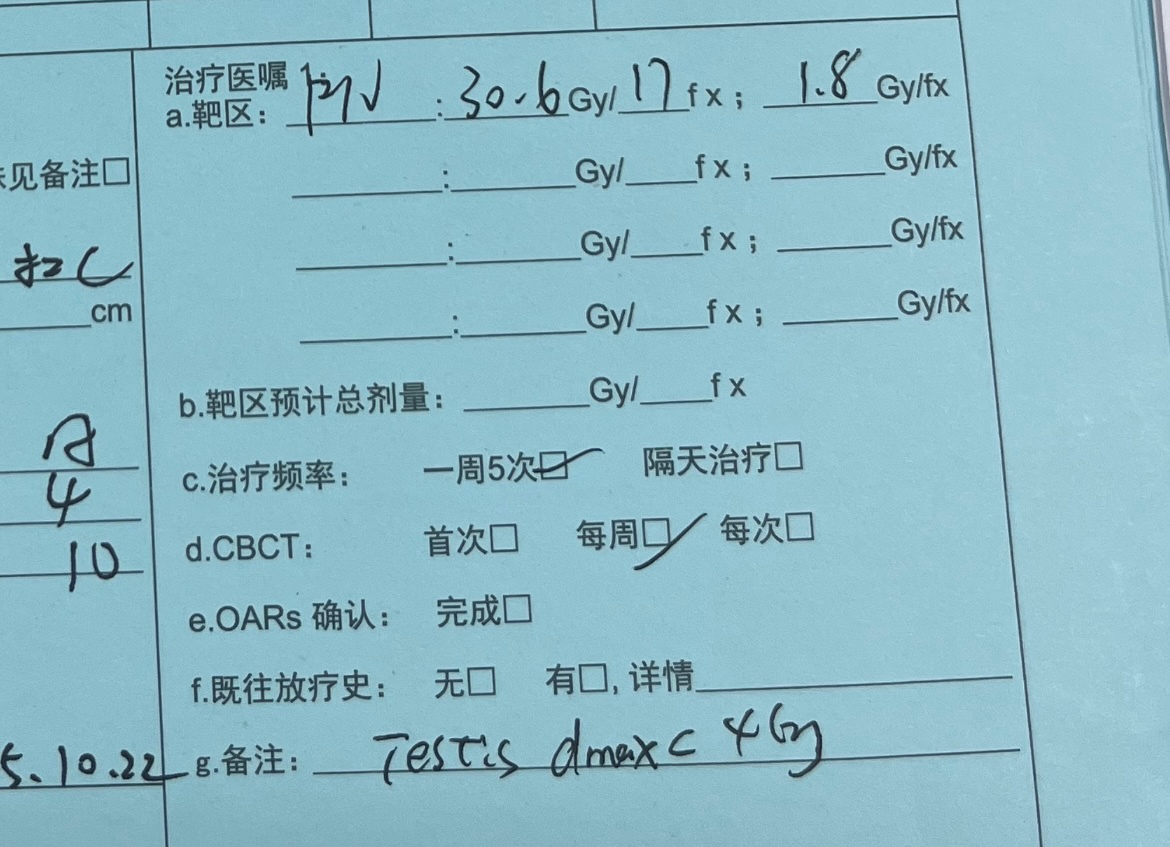 治疗医嘱
a.靶区： PTV :30.6Gy/17fx；1.8Gy/fx
未见备注□
:Gy/fx；Gy/fx
:Gy/fx；Gy/fx
扫C
cm
:Gy/fx；Gy/fx
b.靶区预计总剂量：Gy/fx
c.治疗频率： 一周5次☑ 隔天治疗□
4
d.CBCT： 首次□ 每周☑ 每次□
10
e.OARs 确认： 完成□
f.既往放疗史： 无□ 有□, 详情
5.10.22
g.备注： Testis dmax< 4Gy